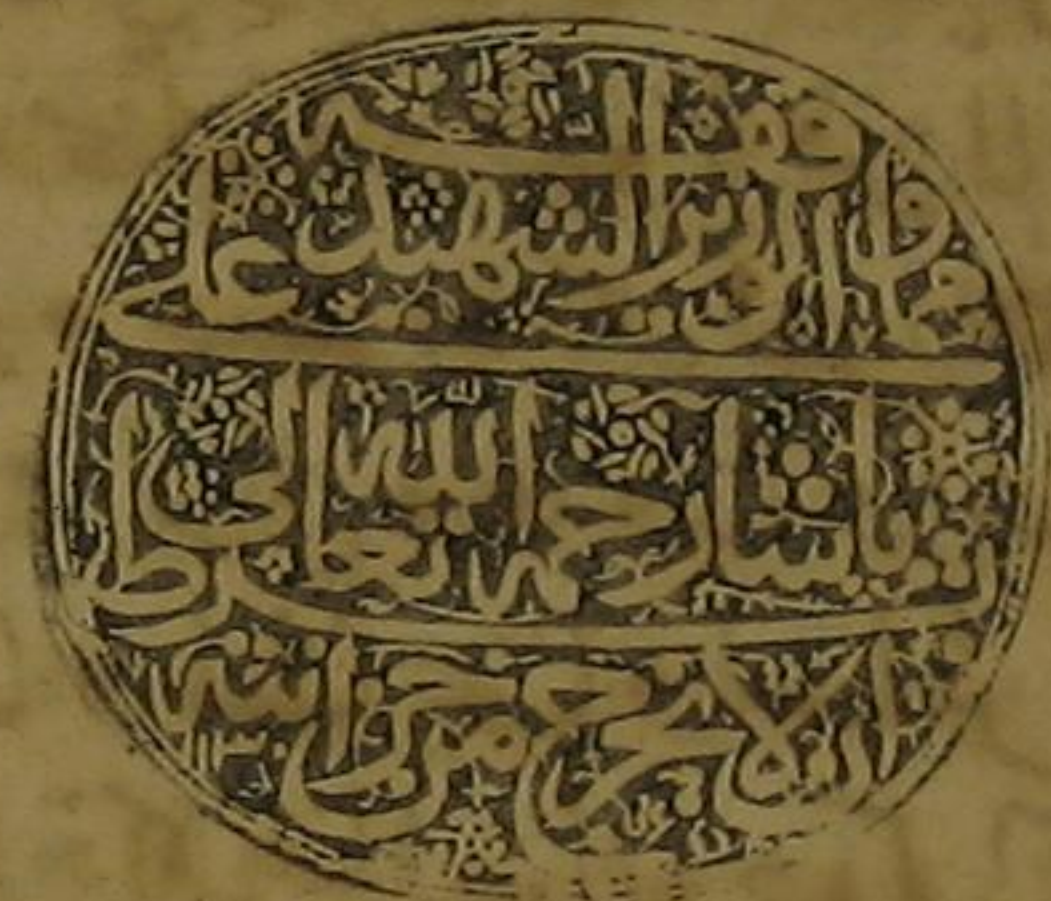 مما وقفه الوزير الشهيد علي
باشا رحمه الله تعالى بشرط
ان لا يخرج من خزانته ١١٣٠